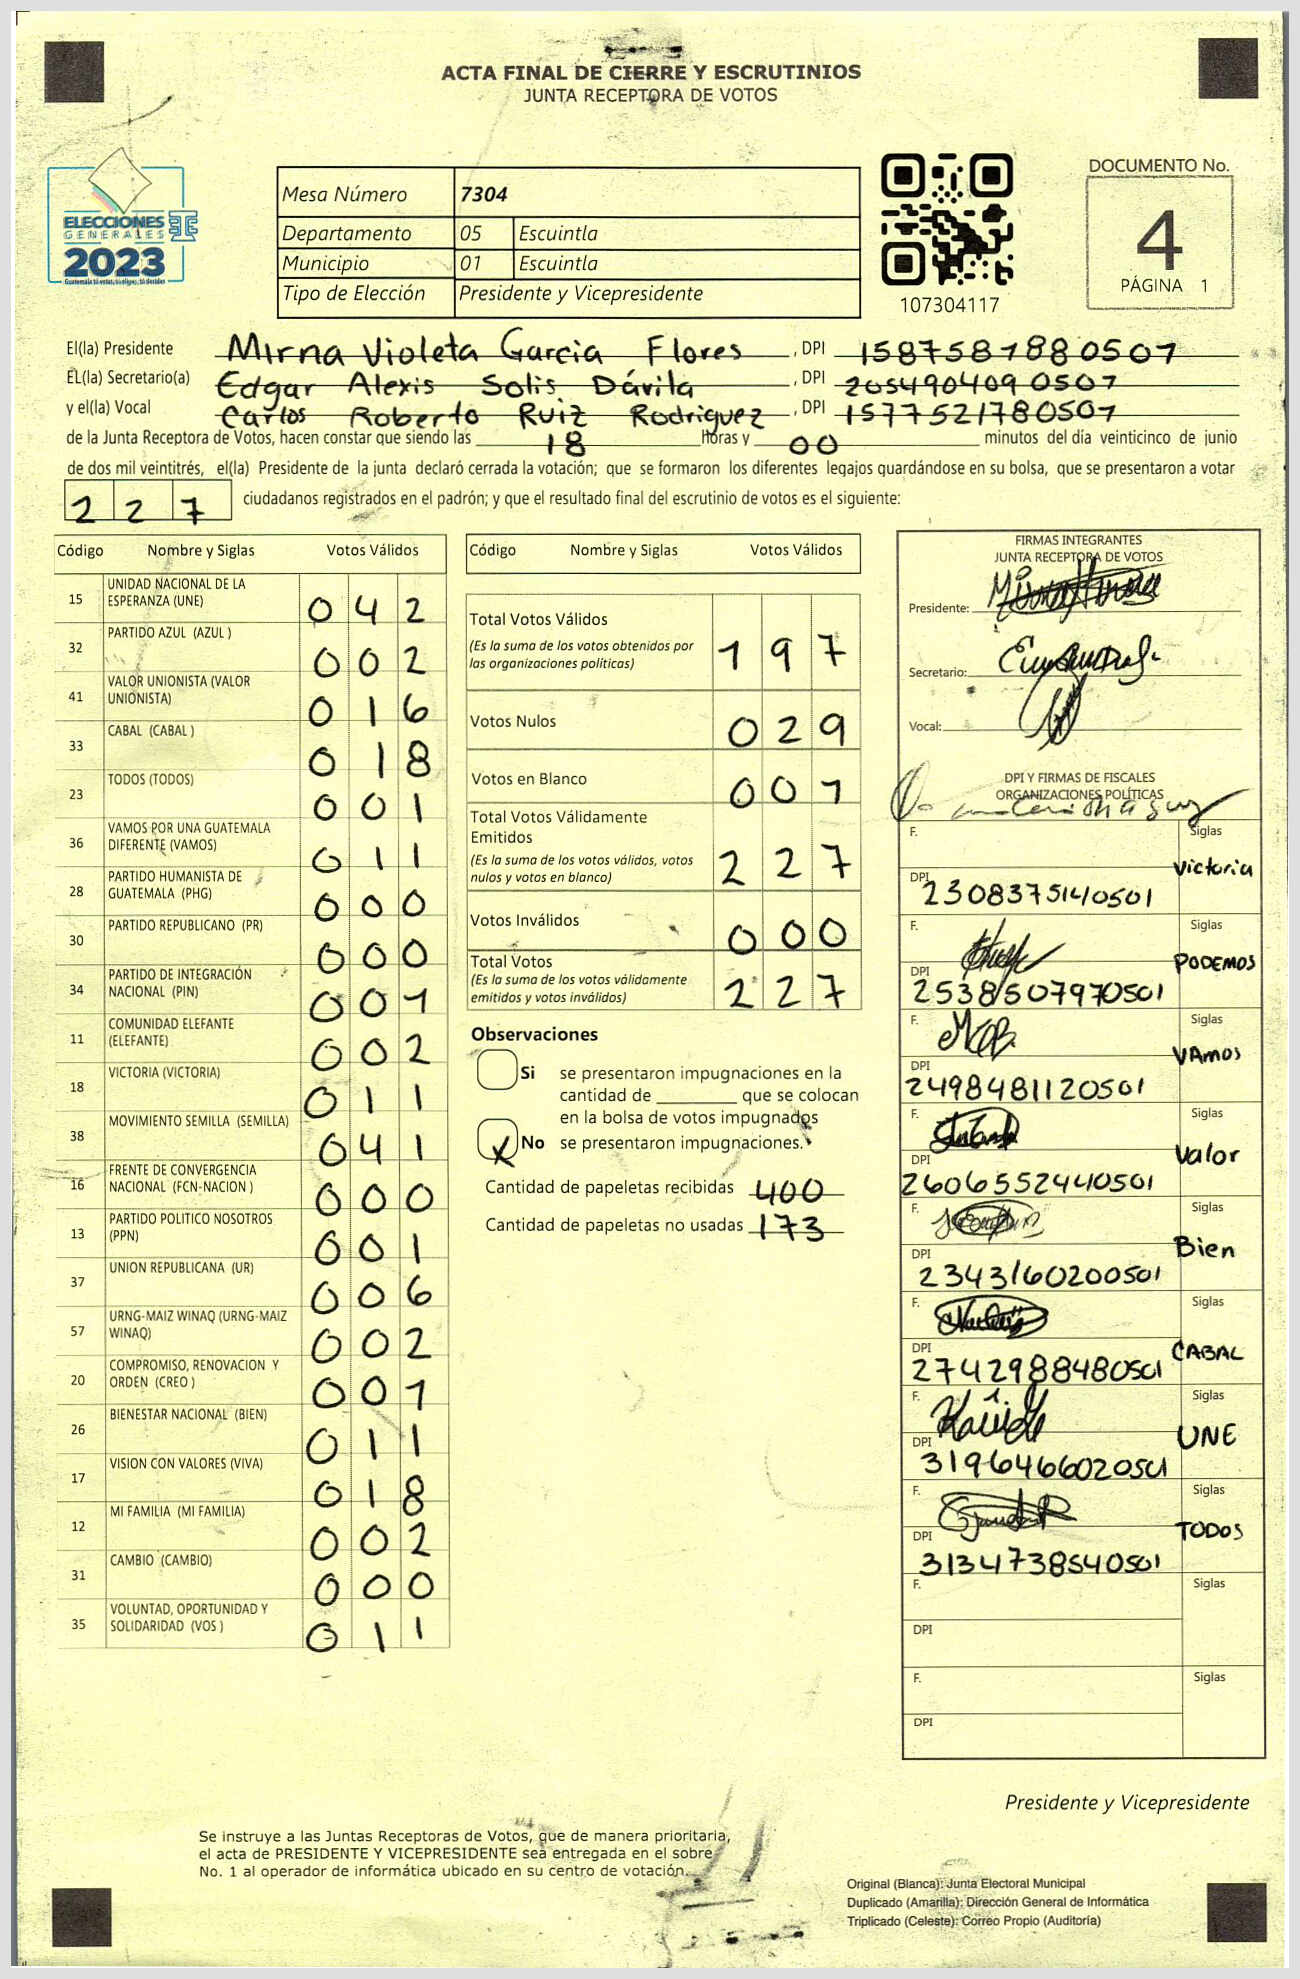 ACTA FINAL DE CIERRE Y ESCRUTINIOS
JUNTA RECEPTORA DE VOTOS
ELECCIONES
GENERALES
2023
Guatemala tú votas, tú eliges, tú decides
Mesa Número 7304
Departamento 05 Escuintla
Municipio 01 Escuintla
Tipo de Elección Presidente y Vicepresidente
107304117
DOCUMENTO No.
4
PÁGINA 1
El(la) Presidente Mirna Violeta Garcia Flores , DPI 1587581880507
EL(la) Secretario(a) Edgar Alexis Solis Dávila , DPI 2054904090507
y el(la) Vocal Carlos Roberto Ruiz Rodriguez , DPI 1577521780507
de la Junta Receptora de Votos, hacen constar que siendo las 18 horas y 00 minutos del día veinticinco de junio
de dos mil veintitrés, el(la) Presidente de la junta declaró cerrada la votación; que se formaron los diferentes legajos guardándose en su bolsa, que se presentaron a votar
227 ciudadanos registrados en el padrón; y que el resultado final del escrutinio de votos es el siguiente:
Código Nombre y Siglas Votos Válidos
15 UNIDAD NACIONAL DE LA ESPERANZA (UNE) 042
32 PARTIDO AZUL (AZUL ) 002
41 VALOR UNIONISTA (VALOR UNIONISTA) 016
33 CABAL (CABAL ) 018
23 TODOS (TODOS) 001
36 VAMOS POR UNA GUATEMALA DIFERENTE (VAMOS) 011
28 PARTIDO HUMANISTA DE GUATEMALA (PHG) 000
30 PARTIDO REPUBLICANO (PR) 000
34 PARTIDO DE INTEGRACIÓN NACIONAL (PIN) 001
11 COMUNIDAD ELEFANTE (ELEFANTE) 002
18 VICTORIA (VICTORIA) 011
38 MOVIMIENTO SEMILLA (SEMILLA) 041
16 FRENTE DE CONVERGENCIA NACIONAL (FCN-NACION ) 000
13 PARTIDO POLITICO NOSOTROS (PPN) 001
37 UNION REPUBLICANA (UR) 006
57 URNG-MAIZ WINAQ (URNG-MAIZ WINAQ) 002
20 COMPROMISO, RENOVACION Y ORDEN (CREO ) 001
26 BIENESTAR NACIONAL (BIEN) 011
17 VISION CON VALORES (VIVA) 018
12 MI FAMILIA (MI FAMILIA) 002
31 CAMBIO (CAMBIO) 000
35 VOLUNTAD, OPORTUNIDAD Y SOLIDARIDAD (VOS ) 011
Código Nombre y Siglas Votos Válidos
Total Votos Válidos 197
(Es la suma de los votos obtenidos por
las organizaciones políticas)
Votos Nulos 029
Votos en Blanco 001
Total Votos Válidamente
Emitidos 227
(Es la suma de los votos válidos, votos
nulos y votos en blanco)
Votos Inválidos 000
Total Votos 227
(Es la suma de los votos válidamente
emitidos y votos inválidos)
Observaciones
Si se presentaron impugnaciones en la
cantidad de ________ que se colocan
en la bolsa de votos impugnados
X No se presentaron impugnaciones.
Cantidad de papeletas recibidas 400
Cantidad de papeletas no usadas 173
FIRMAS INTEGRANTES
JUNTA RECEPTORA DE VOTOS
Presidente:
Secretario:
Vocal:
DPI Y FIRMAS DE FISCALES
ORGANIZACIONES POLÍTICAS
F. Siglas Victoria
DPI 2308375140501
F. Siglas PODEMOS
DPI 2538507970501
F. Siglas VAmos
DPI 2498481120501
F. Siglas Valor
DPI 2606552440501
F. Siglas Bien
DPI 2343160200501
F. Siglas CABAL
DPI 2742988480501
F. Siglas UNE
DPI 3196466020501
F. Siglas TODOS
DPI 3134738540501
F. Siglas
DPI
F. Siglas
DPI
Presidente y Vicepresidente
Se instruye a las Juntas Receptoras de Votos, que de manera prioritaria,
el acta de PRESIDENTE Y VICEPRESIDENTE sea entregada en el sobre
No. 1 al operador de informática ubicado en su centro de votación.
Original (Blanca): Junta Electoral Municipal
Duplicado (Amarilla): Dirección General de Informática
Triplicado (Celeste): Correo Propio (Auditoría)